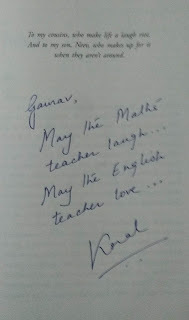 To my cousins, who make life a laugh riot.
And to my son, Neev, who makes up for it
when they aren't around.
Gaurav,
May the Maths
teacher laugh...
May the English
teacher love...
Koral